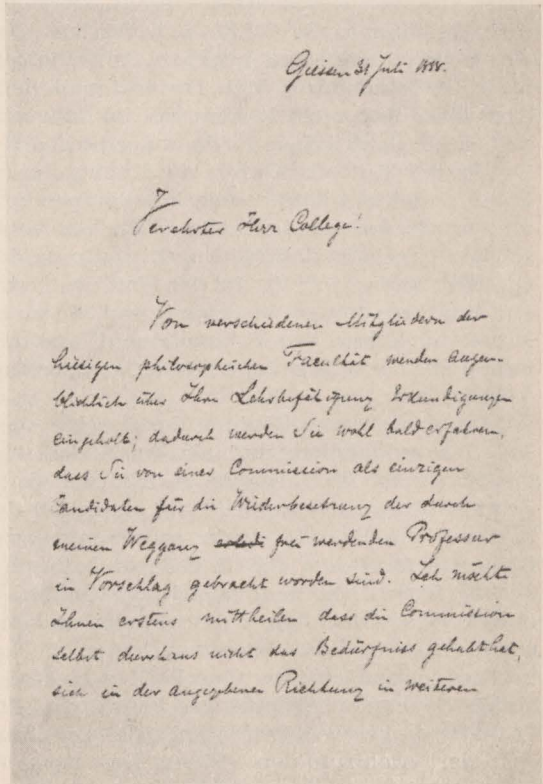 Giessen 31 Juli 1888.
Verehrter Herr College!
Von verschiedenen Mitgliedern der
hiesigen philosophischen Facultät werden augen-
blicklich über Ihre Lehrbefähigung Erkundigungen
eingeholt; dadurch werden Sie wohl bald erfahren,
dass Sie von einer Commission als einzigen
Candidaten für die Wiederbesetzung der durch
meinen Weggang frei werdenden Professur
in Vorschlag gebracht worden sind. Ich möchte
Ihnen erstens mittheilen dass die Commission
selbst durchaus nicht das Bedürfniss gehabt hat,
sich in der angegebenen Richtung in weiteren